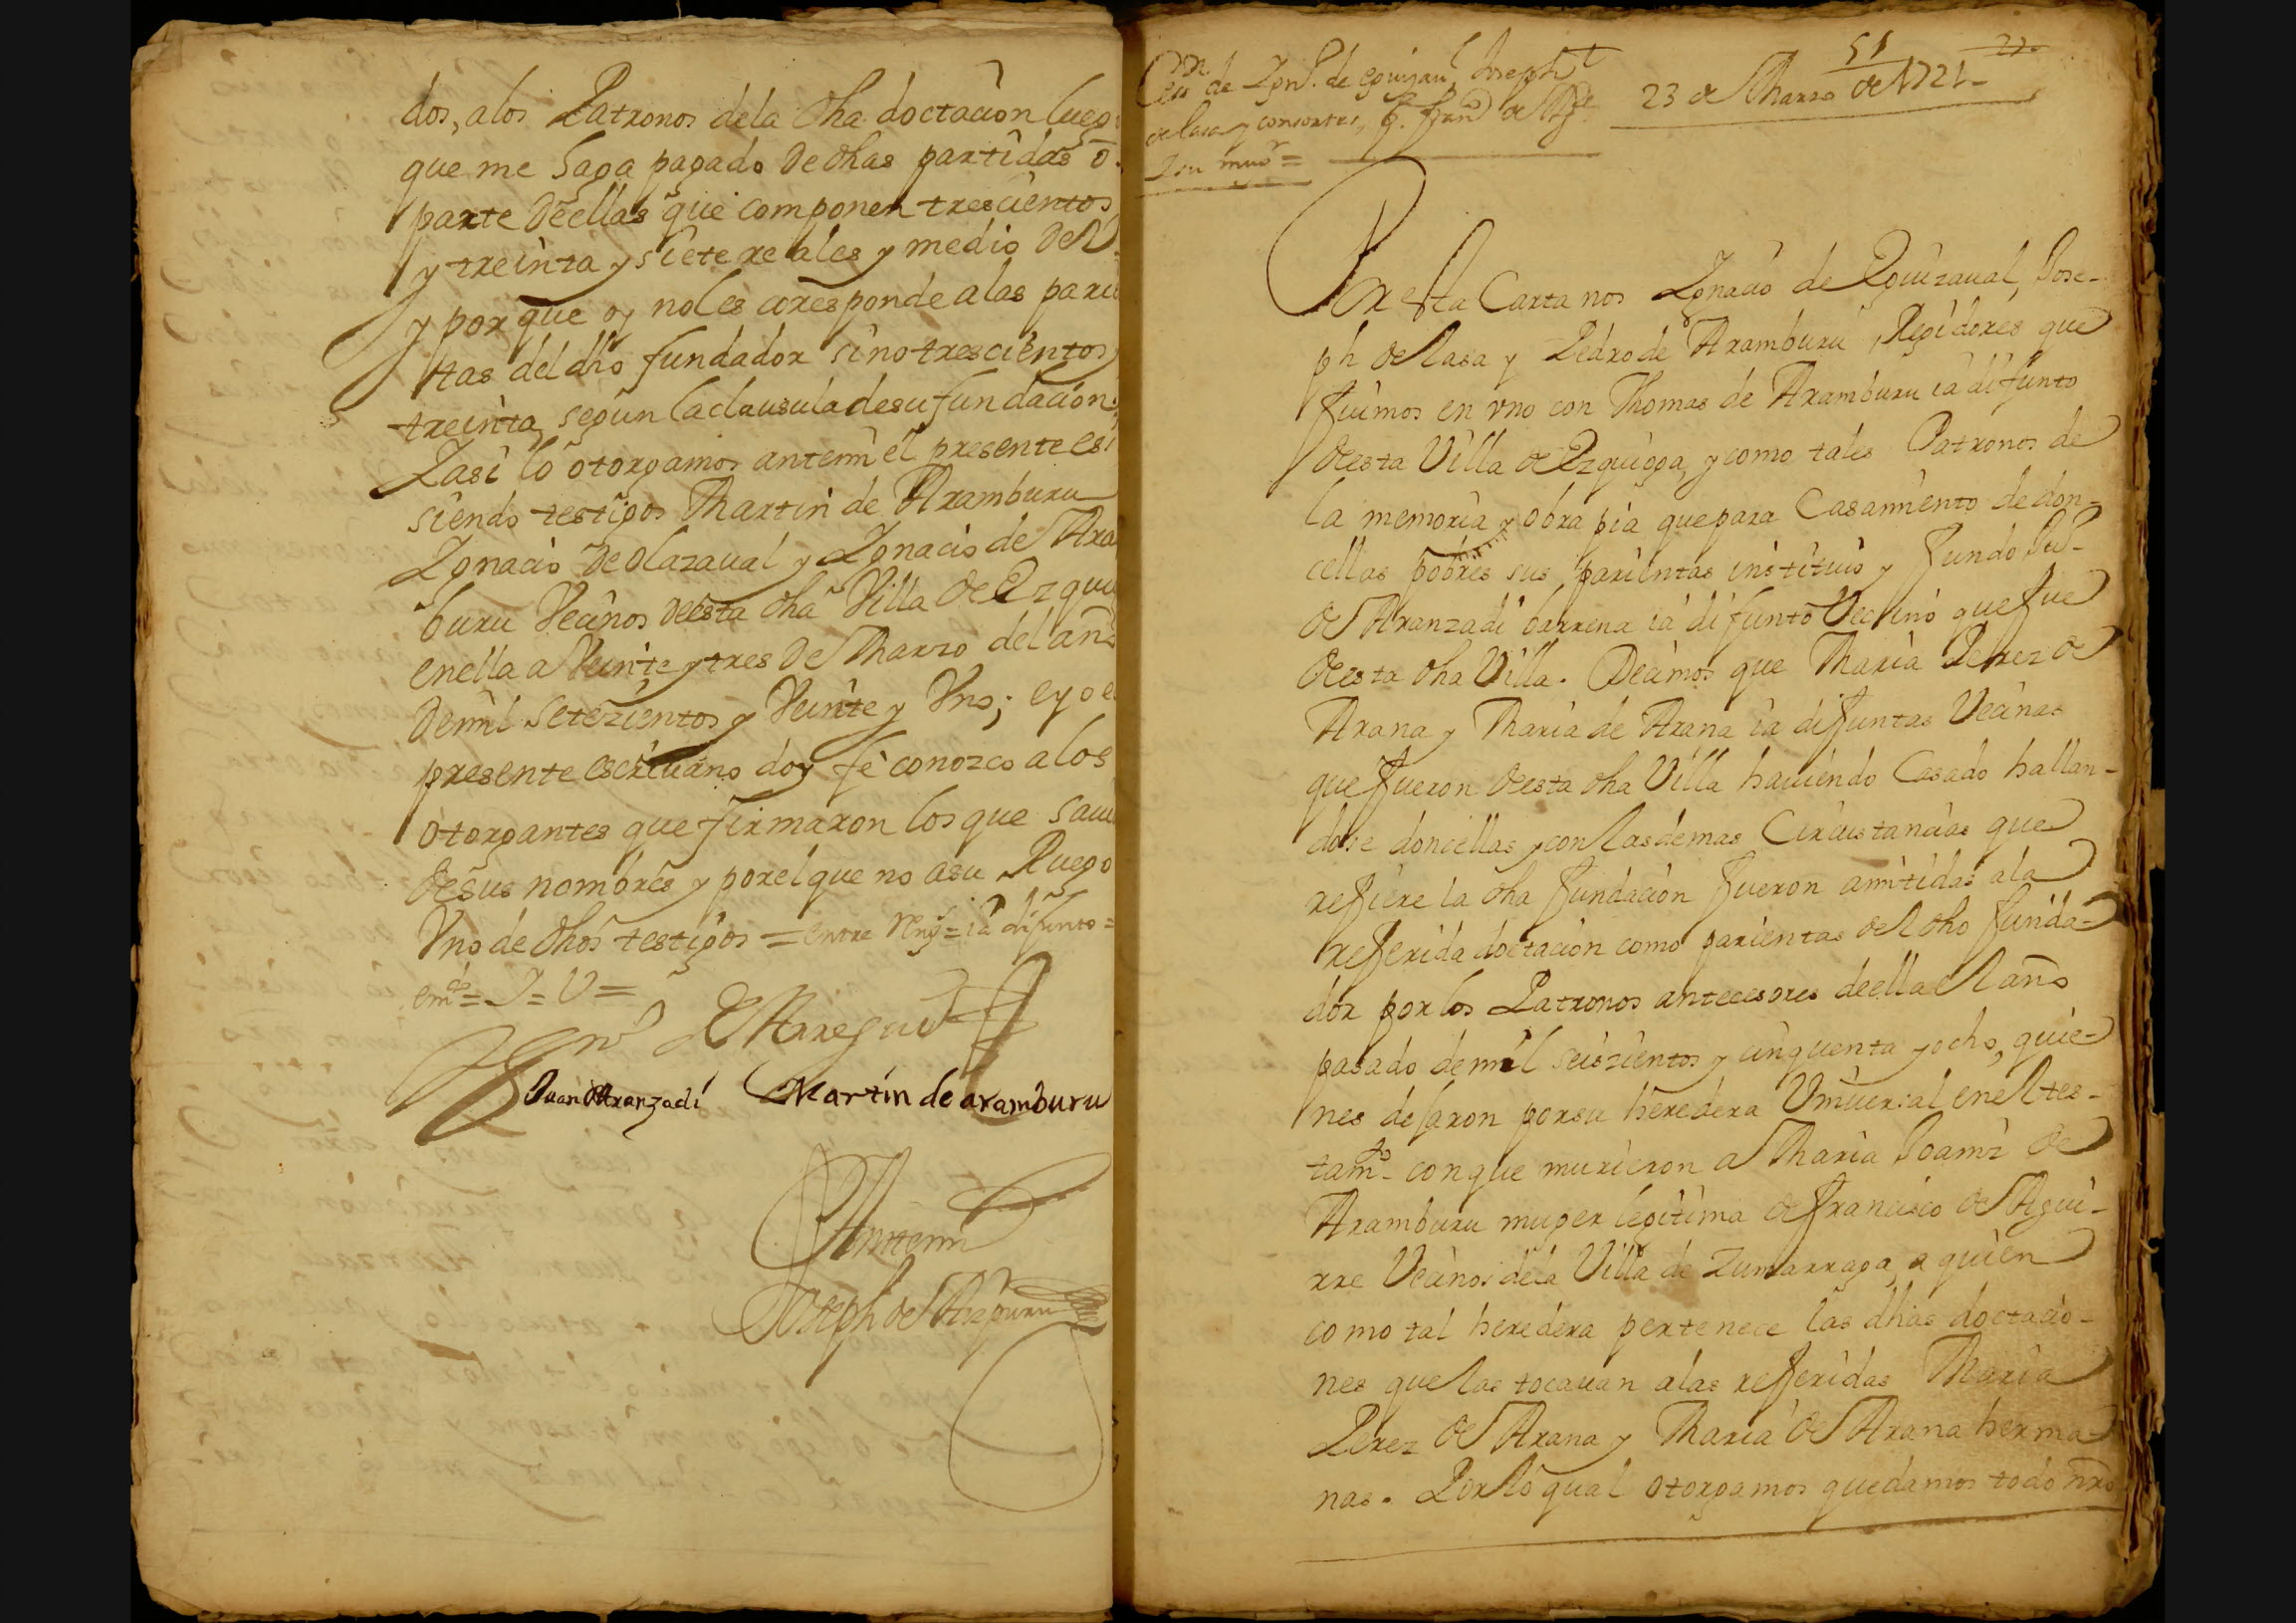 dos, a los Patronos de la dha doctacion lueg
que me haga pagado de dhas partidas o
parte de ellas que componen trescientos
y treinta y siete reales y medio de V.
y por que oy no les coresponde a las parie
tas del dho fundador sino trescientos y
treinta segun la clausula de su fundacion.
Y asi lo otorgamos antemi el presente es
siendo testigos Martin de Aramburu
Ignacio de Olazaval y Ignacio de Ara
buru Vecinos de esta dha Villa de Ezqui
en ella a Veinte y tres de Marzo del año
de mil setezientos y Veinte y Vno; e yo e
presente escrivano doy fe conozco a los
otorgantes que firmaron los que sav
de sus nombres y por el que no a su Ruego
Vno de dhos testigos = entre Reng = ia difunto =
em.do = I = V =
Juan Aranzadi Martin de aramburu
Antemi
Joseph de
51
23 de Marzo de 1721
Por esta Carta nos Ignacio de Eguizaval, Jose-
ph de Lasa y Pedro de Aramburu, Regidores que
fuimos en vno con Thomas de Aramburu ia difunto
de esta Villa de Ezquioga, y como tales Patronos de
la memoria y obra pia que para Casamiento de don-
cellas pobres sus parientas instituio y fundo
de Aranzadi barrena ia difunto Vecino que fue
de esta dha Villa. Decimos que Maria Perez de
Arana y Maria de Arana ia difuntas Vecinas
que fueron de esta dha Villa haviendo Casado hallan-
dose doncellas y con las demas Circustancias que
refiere la dha fundacion fueron amitidas a la
referida doctacion como parientas del dho funda-
dor por los Patronos antecesores de ella el año
pasado de mil seiszientos y cinquenta y ocho, quie-
nes dejaron por su heredera Vniversal en el tes-
tam.to con que murieron a Maria Joamiz de
Aramburu muger legitima de francisco de Agui-
rre Vecinos de la Villa de Zumarraga, a quien
como tal heredera pertenece las dhas doctacio-
nes que las tocavan a las referidas Maria
Perez de Arana y Maria de Arana herma-
nas. Por lo qual otorgamos que damos todo nro